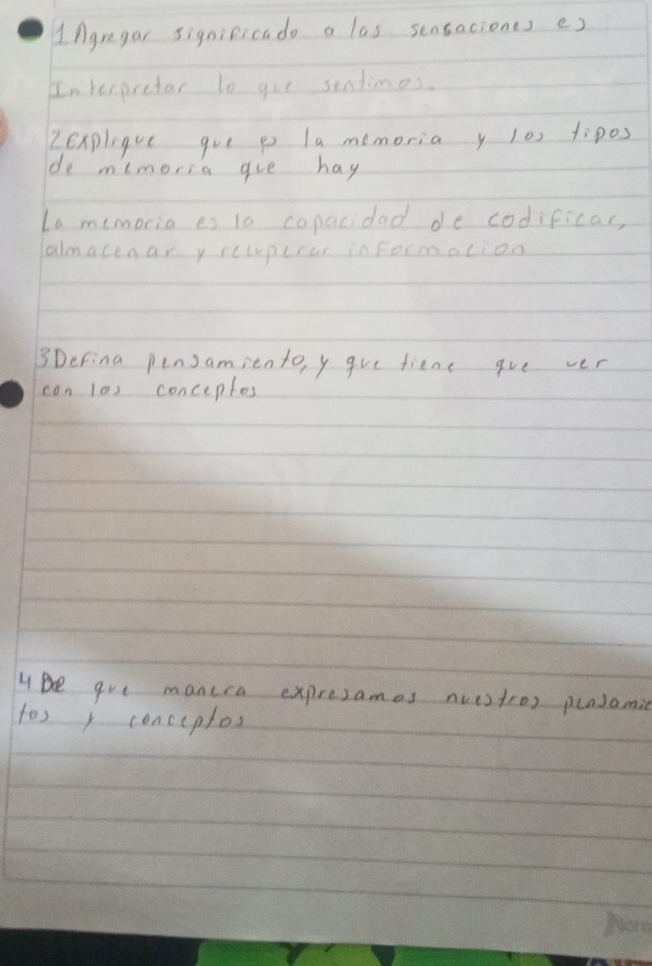 1 Agregar significado a las sensaciones es
Interpretar lo que sentimos.
2 Explique que es la memoria y los tipos
de memoria que hay
La memoria es la capacidad de codificar,
almacenar y recuperar informacion
3 Defina pensamiento, y que tiene que ver
con los conceptos
4 De que manera expresamos nuestros pensamie
tos y conceptos
Norm